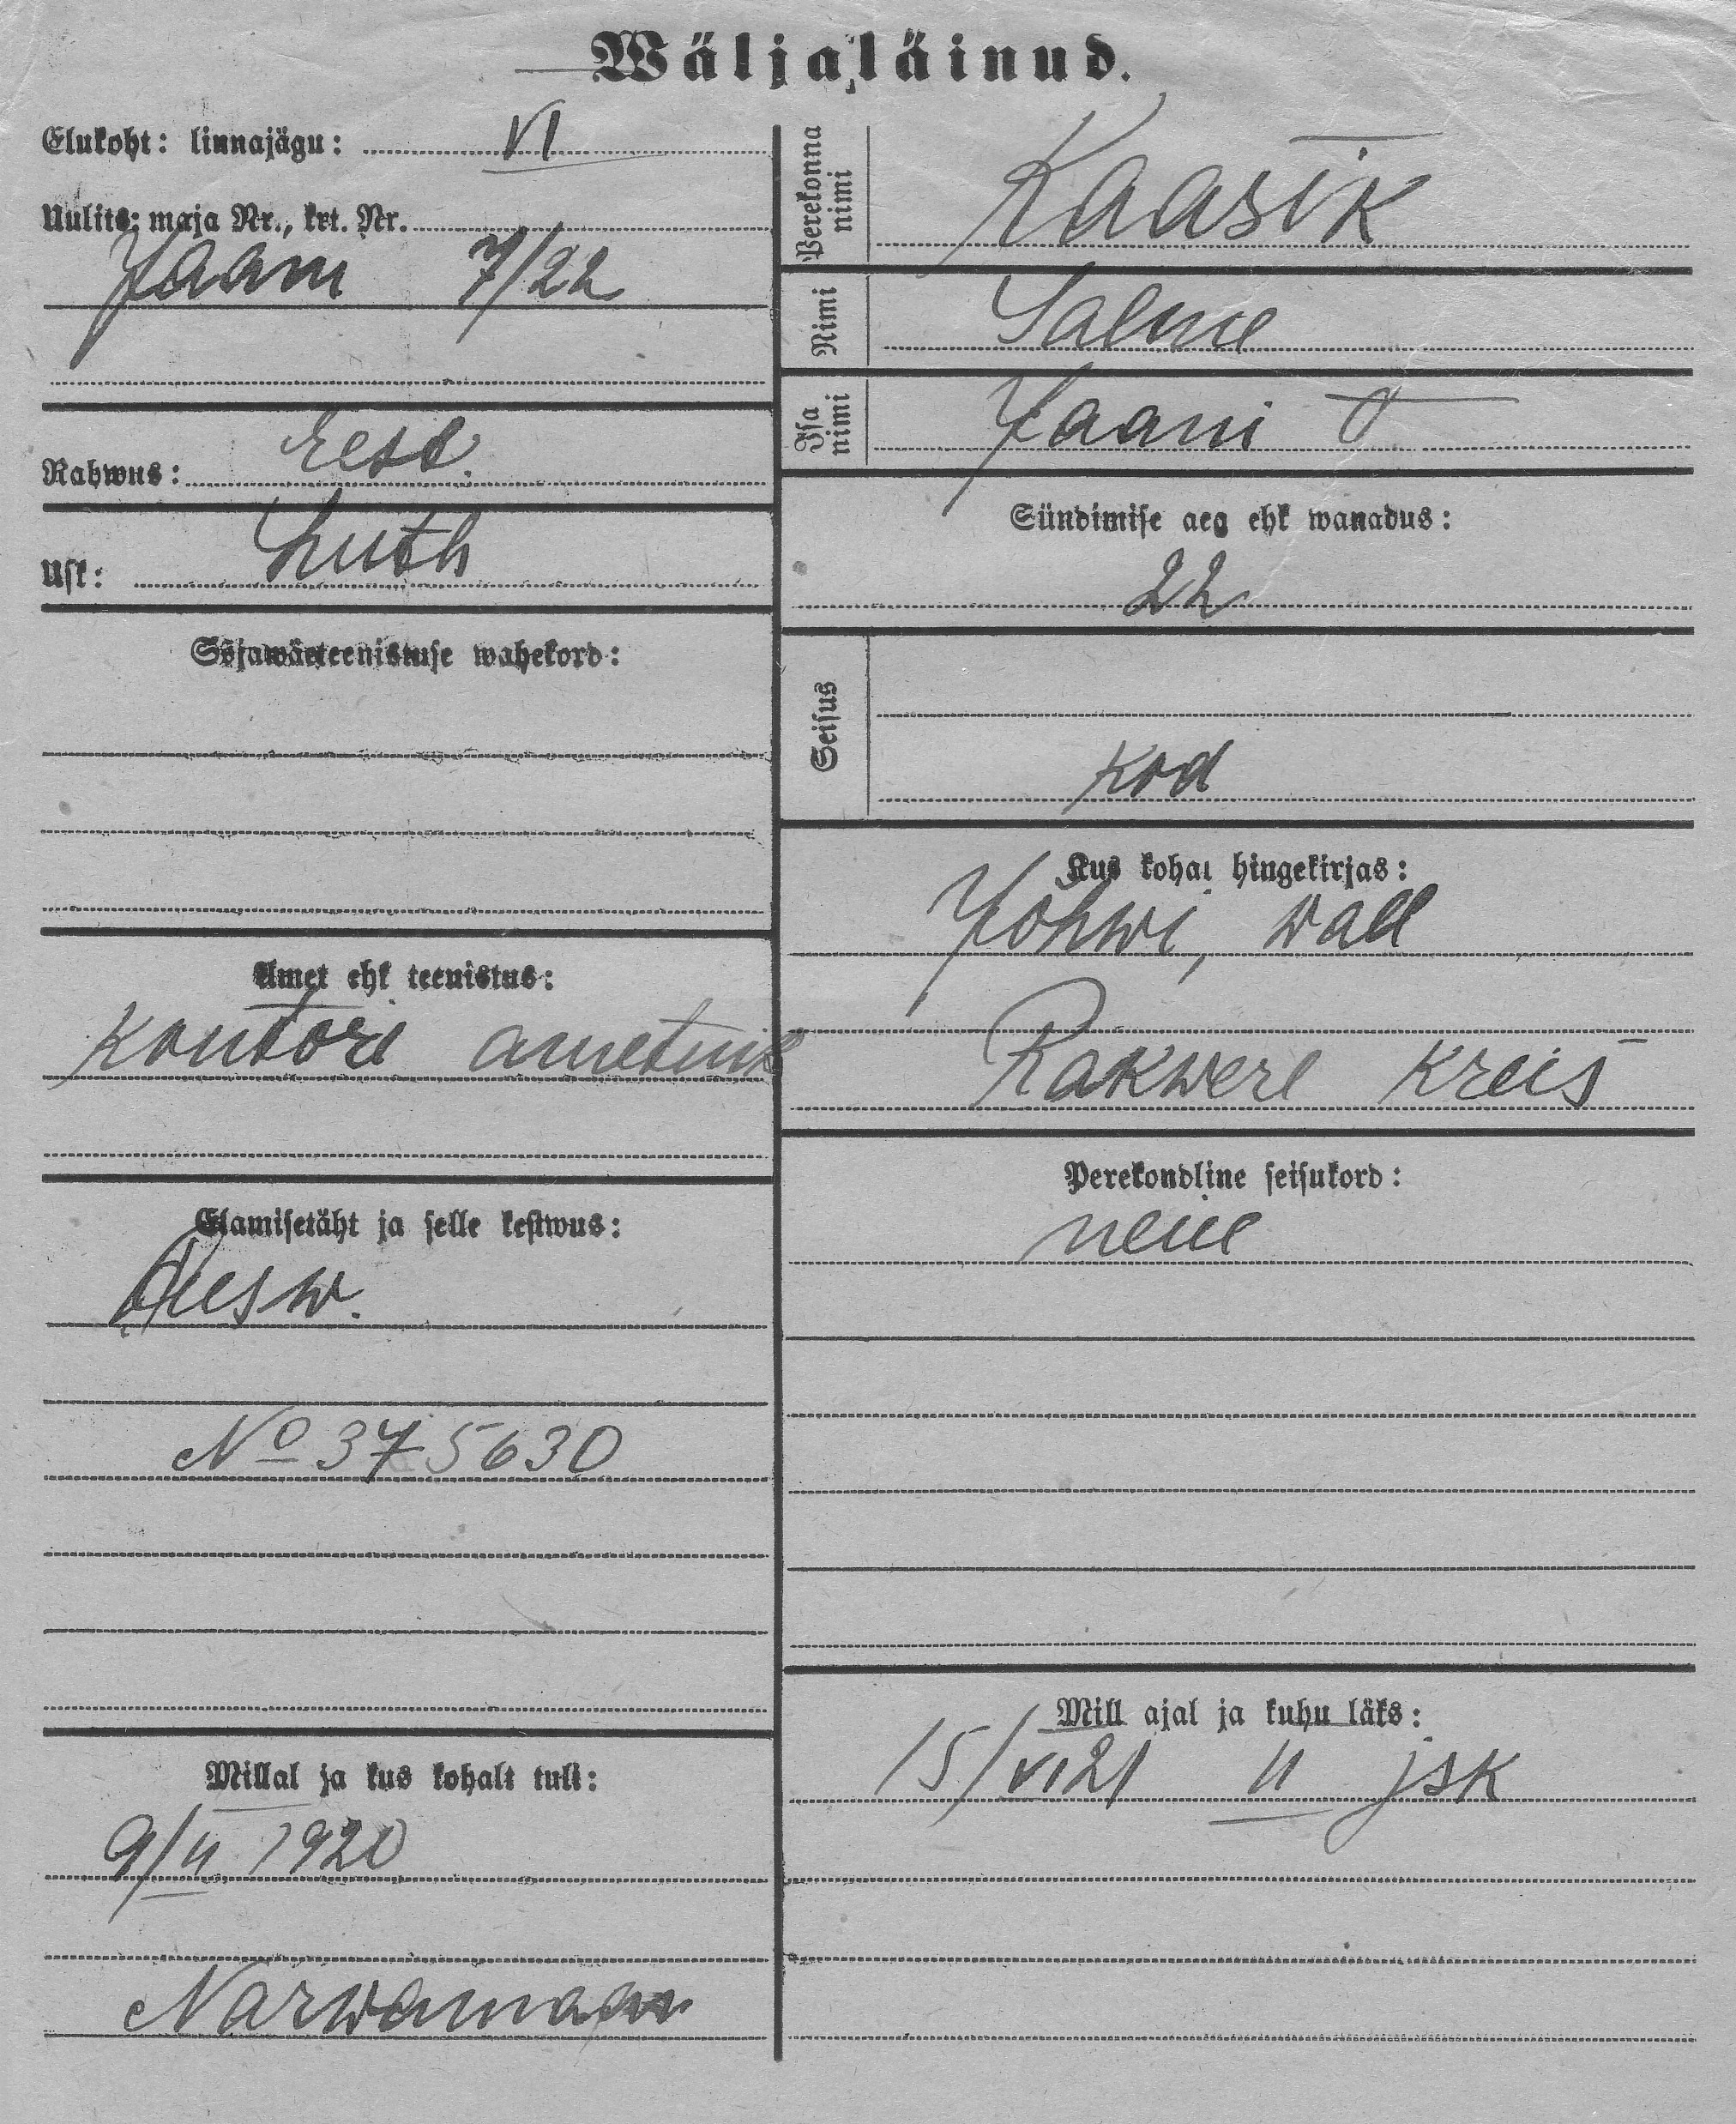 Wäljaläinud.
Elukoht: linnajägu: VI
Uulits; maja Nr., krt. Nr.
Jaani 7/22
Rahwus: Eest.
Usk: Luth
Sõjawäeteenistuse wahekord:
Amet ehk teenistus:
Kontori ametnik
Elamisetäht ja selle kestwus:
No 375630
Millal ja kus kohalt tuli:
9/II 1920
Perekonna nimi Kaasik
Nimi Salme
Isa nimi Jaani t
Sündimise aeg ehk wanadus:
22
Seisus
kod
Kus kohal hingekirjas:
Jõhwi, wall
Rakwere kreis
Perekondline seisukord:
neiu
Mill ajal ja kuhu läks:
15/VI 21 II jsk